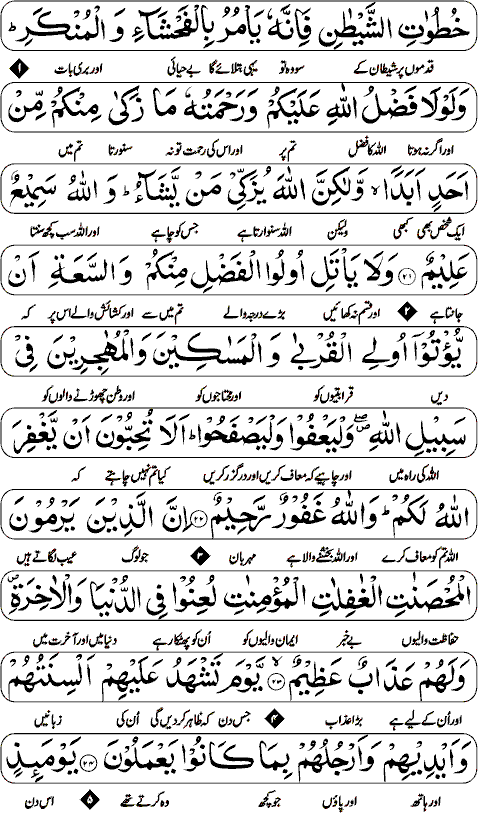 خُطُوٰتِ الشَّيْطٰنِ فَاِنَّهٗ يَاْمُرُ بِالْفَحْشَآءِ وَ الْمُنْكَرِ ؕ
قدموں پر شیطان کے سووہ تو یہی بتلائے گا بے حیائی اور بری بات ۱
وَلَوْلَا فَضْلُ اللّٰهِ عَلَيْكُمْ وَرَحْمَتُهٗ مَا زَكٰى مِنْكُمْ مِّنْ
اور اگر نہ ہوتا اللہ کا فضل تم پر اور اس کی رحمت تو نہ سنورتا تم میں
اَحَدٍ اَبَدًا ۙ وَّلٰكِنَّ اللّٰهَ يُزَكِّىْ مَنْ يَّشَآءُ ؕ وَ اللّٰهُ سَمِيْعٌ
ایک شخص بھی کبھی ولیکن اللہ سنوارتا ہے جس کو چاہے اور اللہ سب کچھ سنتا
عَلِيْمٌ ﴿۲۱﴾ وَلَا يَاْتَلِ اُولُوا الْفَضْلِ مِنْكُمْ وَ السَّعَةِ اَنْ
جانتا ہے ۲ اور قسم نہ کھائیں بڑے درجہ والے تم میں سے اور کشائش والے اس پر کہ
يُّؤْتُوْٓا اُولِى الْقُرْبٰى وَ الْمَسٰكِيْنَ وَالْمُهٰجِرِيْنَ فِىْ
دیں قرابتیوں کو اور محتاجوں کو اور وطن چھوڑنے والوں کو
سَبِيْلِ اللّٰهِ ۖ وَلْيَعْفُوْا وَلْيَصْفَحُوْا ؕ اَلَا تُحِبُّوْنَ اَنْ يَّغْفِرَ
اللہ کی راہ میں اور چاہیے کہ معاف کریں اور درگزر کریں کیا تم نہیں چاہتے کہ
اللّٰهُ لَكُمْ ؕ وَاللّٰهُ غَفُوْرٌ رَّحِيْمٌ ﴿۲۲﴾ اِنَّ الَّذِيْنَ يَرْمُوْنَ
اللہ تم کو معاف کرے اور اللہ بخشنے والا ہے مہربان ۳ جو لوگ عیب لگاتے ہیں
الْمُحْصَنٰتِ الْغٰفِلٰتِ الْمُؤْمِنٰتِ لُعِنُوْا فِى الدُّنْيَا وَالْاٰخِرَةِ ۪
حفاظت والیوں بے خبر ایمان والیوں کو اُن کو پھٹکار ہے دنیا میں اور آخرت میں
وَلَهُمْ عَذَابٌ عَظِيْمٌ ﴿۲۳﴾ ۙ يَّوْمَ تَشْهَدُ عَلَيْهِمْ اَلْسِنَتُهُمْ
اور اُن کے لیے ہے بڑا عذاب ۴ جس دن کہ ظاہر کر دیں گی اُن کی زبانیں
وَاَيْدِيْهِمْ وَاَرْجُلُهُمْ بِمَا كَانُوْا يَعْمَلُوْنَ ﴿۲۴﴾ يَوْمَئِذٍ
اور ہاتھ اور پاؤں جو کچھ وہ کرتے تھے ۵ اس دن